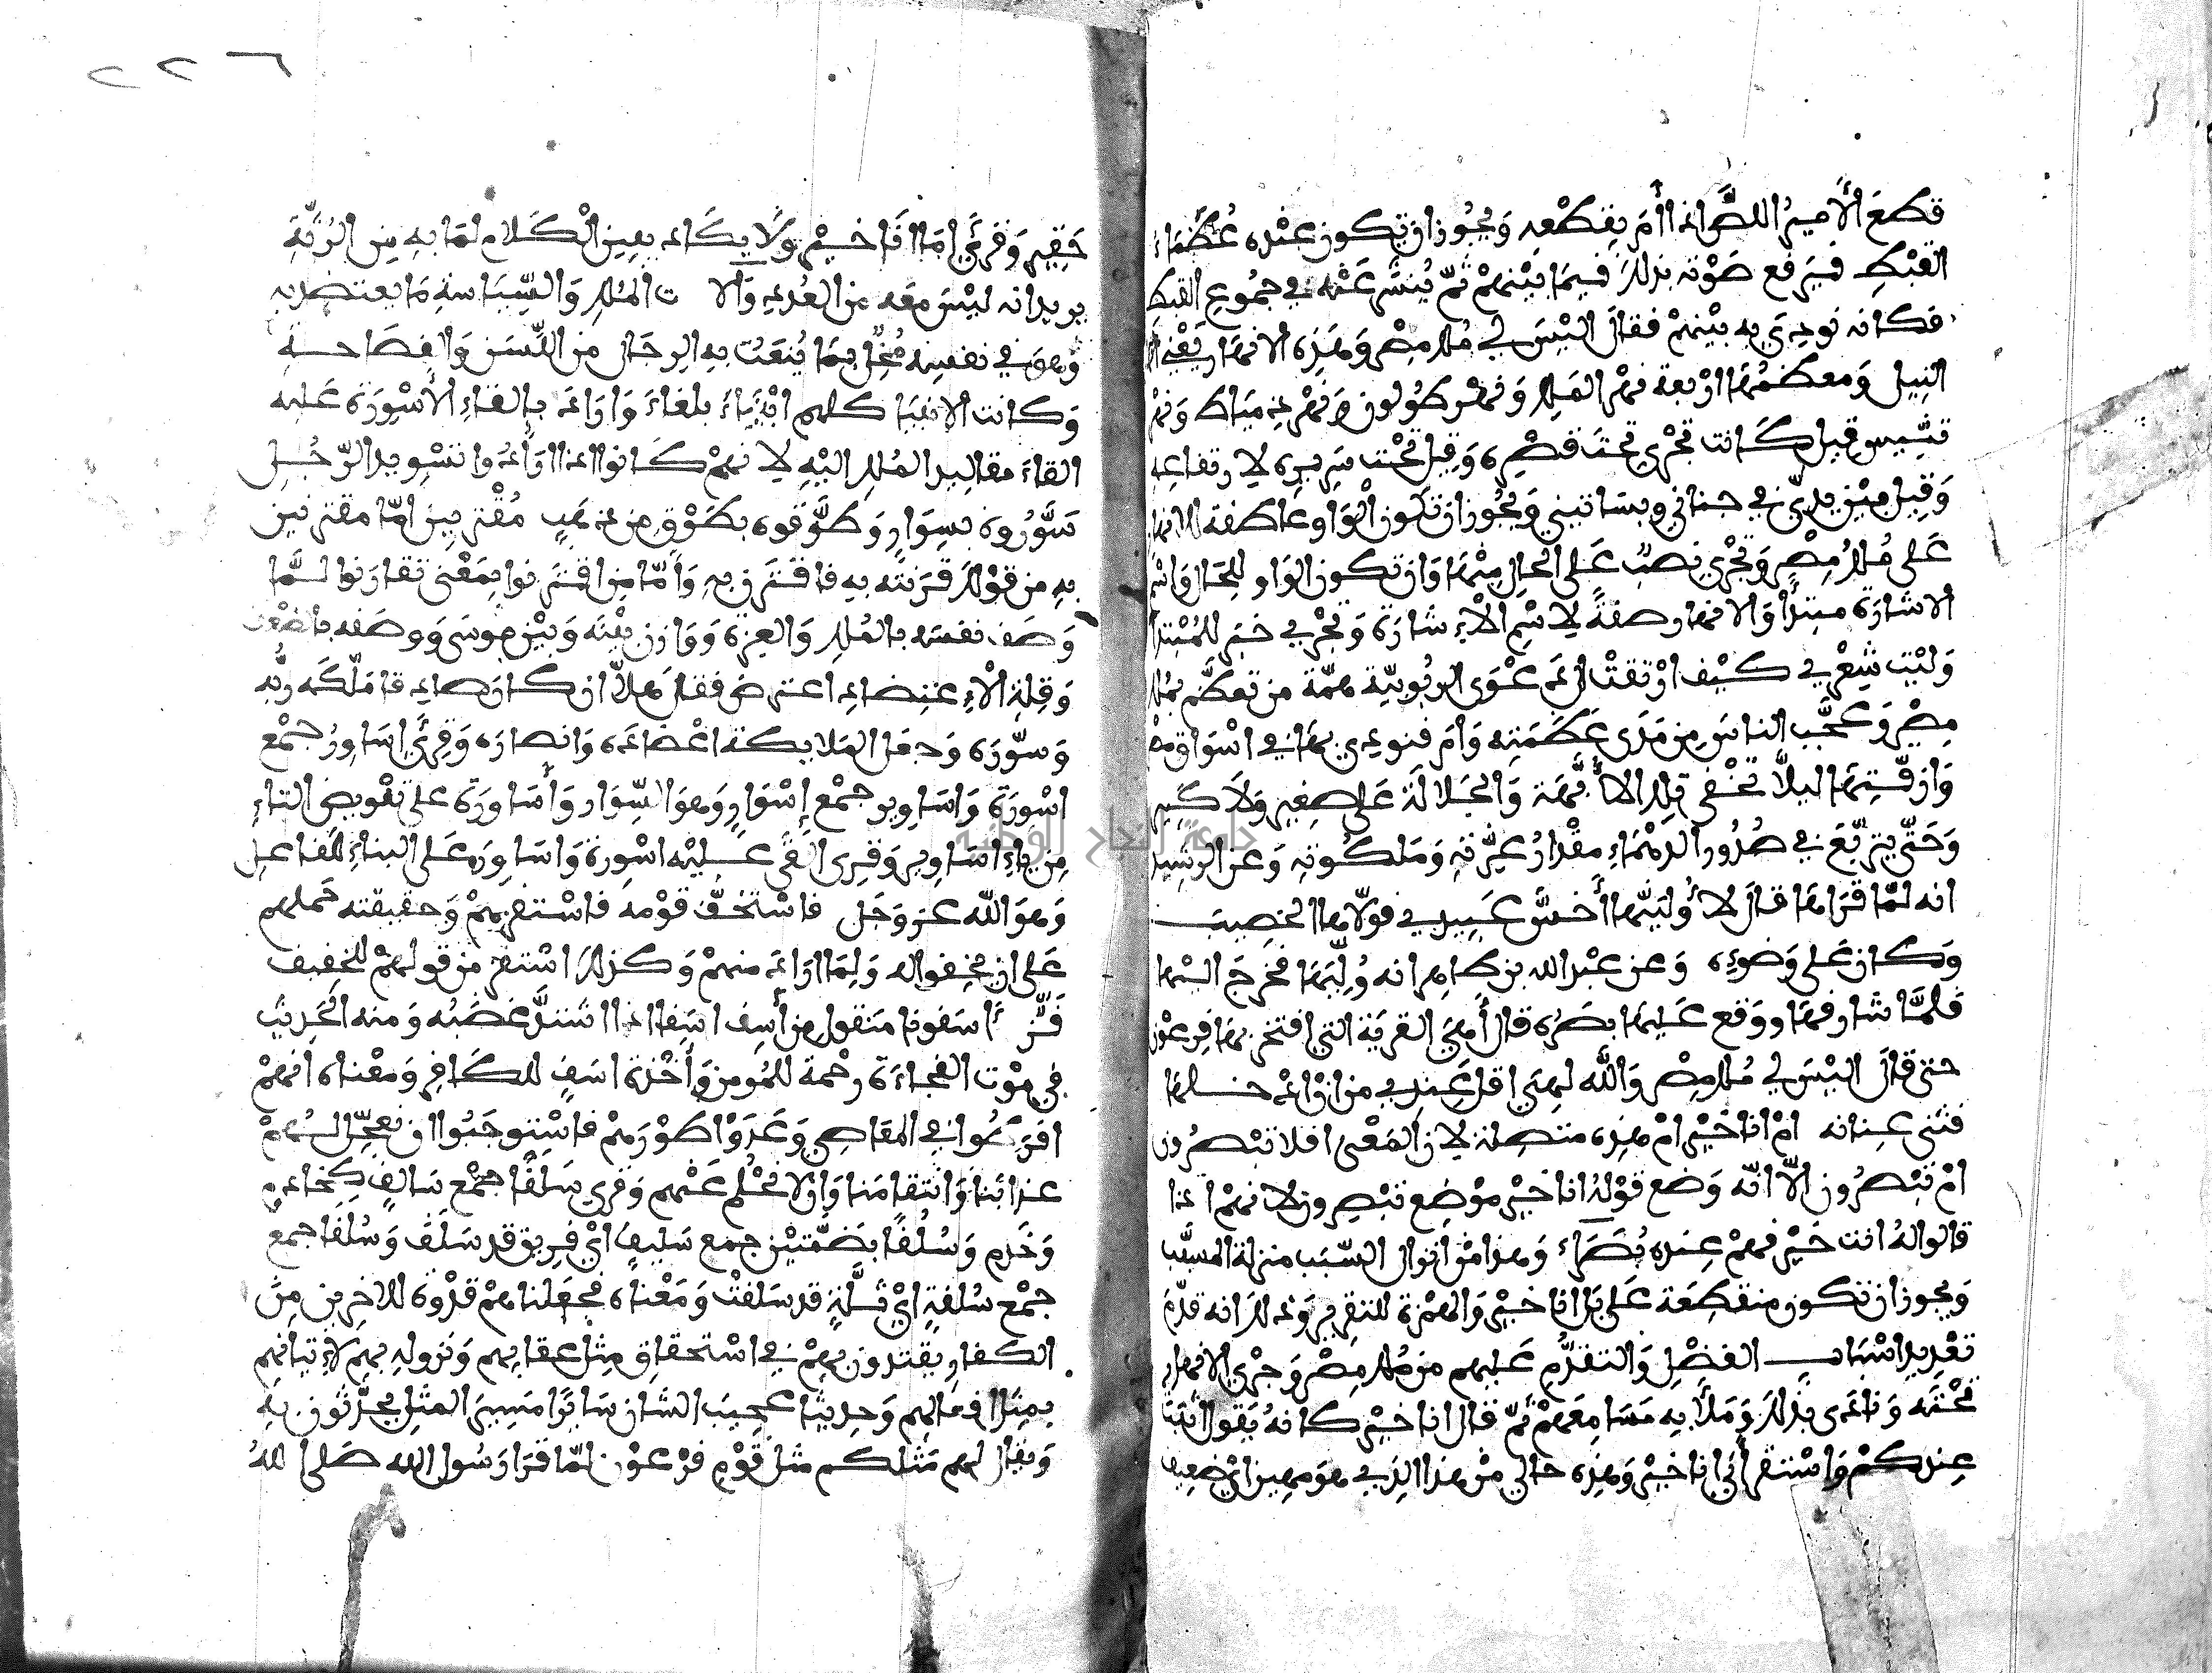 قطع الأمير اللص إذا أمر بقطعه ويجوز أن يكون عنده عظماء
القبط فيرفع صوته بذلك فيما بينهم ثم ينشر عنه في جموع القبط
فكأنه نودي به بينهم فقال أليس لي ملك مصر وهذه الأنهار يعني أنهار
النيل ومعظمها أربعة نهر الملك ونهر طولون ونهر دمياط ونهر
تنيس قيل كانت تجري تحت قصره وقيل تحت سريره لارتفاعه
وقيل بين يدي في جناني وبساتيني ويجوز أن تكون الواو عاطفة للأنهار
على ملك مصر وتجري نصب على الحال منها وأن تكون الواو للحال واسم
الإشارة مبتدأ والأنهار صفة لاسم الإشارة وتجري خبر للمبتدأ
وليت شعري كيف ارتقت إلى دعوى الربوبية همة من تعظم بملك
مصر وعجب الناس من مدى عظمته وأمر فنودي بها في أسواق مصر
وأزقتها ليلا تخفى تلك الأبهة والجلالة على صغير ولا كبير
وحتى يتربع في صدور الدهماء مقدار عزته وملكوته وعن الرشيد
أنه لما قرأها قال لأولينها أخس عبيدي فولاها الخصيب
وكان على وضوءه وعن عبد الله بن طاهر أنه وليها فخرج إليها
فلما شارفها ووقع عليها بصره قال أهي القرية التي افتخر بها فرعون
حتى قال أليس لي ملك مصر والله لهي أقل عندي من أن أدخلها
فثنى عنانه أم أنا خير أم هذه متصلة لأن المعنى أفلا تبصرون
أم تبصرون إلا أنه وضع قوله أنا خير موضع تبصرون لأنهم إذا
قالوا له أنت خير فهم عنده بصراء وهذا من إنزال السبب منزلة المسبب
ويجوز أن تكون منقطعة على بل أنا خير والهمزة للتقرير وذلك أنه قدم
تعديد أسباب الفضل والتقدم عليهم من ملك مصر وجري الأنهار
تحته ونادى بذلك وملأ به مسامعهم ثم قال أنا خير كأنه يقول أثبت
عندكم واستقر أني أنا خير وهذه حالي من هذا الذي هو مهين أي ضعيف
٢٢٦
حقير وقرئ أما أنا خير ولا يكاد يبين الكلام لما به من الرتة
يريد أنه ليس معه من العدد والآلات الملك والسياسة ما يعتضد به
وهو في نفسه مخل بما ينعت به الرجال من اللسن والفصاحة
وكانت الأنبيا كلهم أبيناء بلغاء وأراد بإلقاء الأسورة عليه
إلقاء مقاليد الملك إليه لأنهم كانوا إذا أرادوا تسويد الرجل
سوروه بسوار وطوقوه بطوق من ذهب مقترنين إما مقترنين
به من قولك قرنته به فاقترن به وإما من اقترنوا بمعنى تقارنوا لما
وصف نفسه بالملك والعزة ووازن بينه وبين موسى ووصفه بالضعف
وقلة الأعضاد اعترض فقال هلا إن كان صادقا ملكه ربه
وسوره وجعل الملائكة أعضاده وأنصاره وقرئ أساور جمع
أسورة وأساوير جمع إسوار وهو السوار وأساورة على تعويض التاء
من ياء أساوير وقرئ ألقي عليه أسورة وأساورة على البناء للفاعل
وهو الله عز وجل فاستخف قومه فاستفزهم وحقيقته حملهم
على أن يخفوا له ولما أراد منهم وكذلك استفز من قولهم للخفيف
فز آسفونا منقول من أسف أسفا إذا اشتد غضبه ومنه الحديث
في موت الفجاءة رحمة للمومن وأخذة أسف للكافر ومعناه أنهم
أفرطوا في المعاصي وعدوا طورهم فاستوجبوا أن نعجل لهم
عذابنا وانتقامنا وأن لا نحلم عنهم وقرئ سلفا جمع سالف كخادم
وخدم وسلفا بضمتين جمع سليف أي فريق قد سلف وسلفا جمع
جمع سلفة أي ثلة قد سلفت ومعناه فجعلناهم قدوة للاخرين من
الكفار يقتدون بهم في استحقاق مثل عقابهم ونزوله بهم لإتيانهم
بمثل أفعالهم وحديثا عجيب الشان سائرا مسير المثل يحدثون به
ويقال لهم مثلكم مثل قوم فرعون لما قرأ رسول الله صلى الله
جامعة النجاح الوطنية